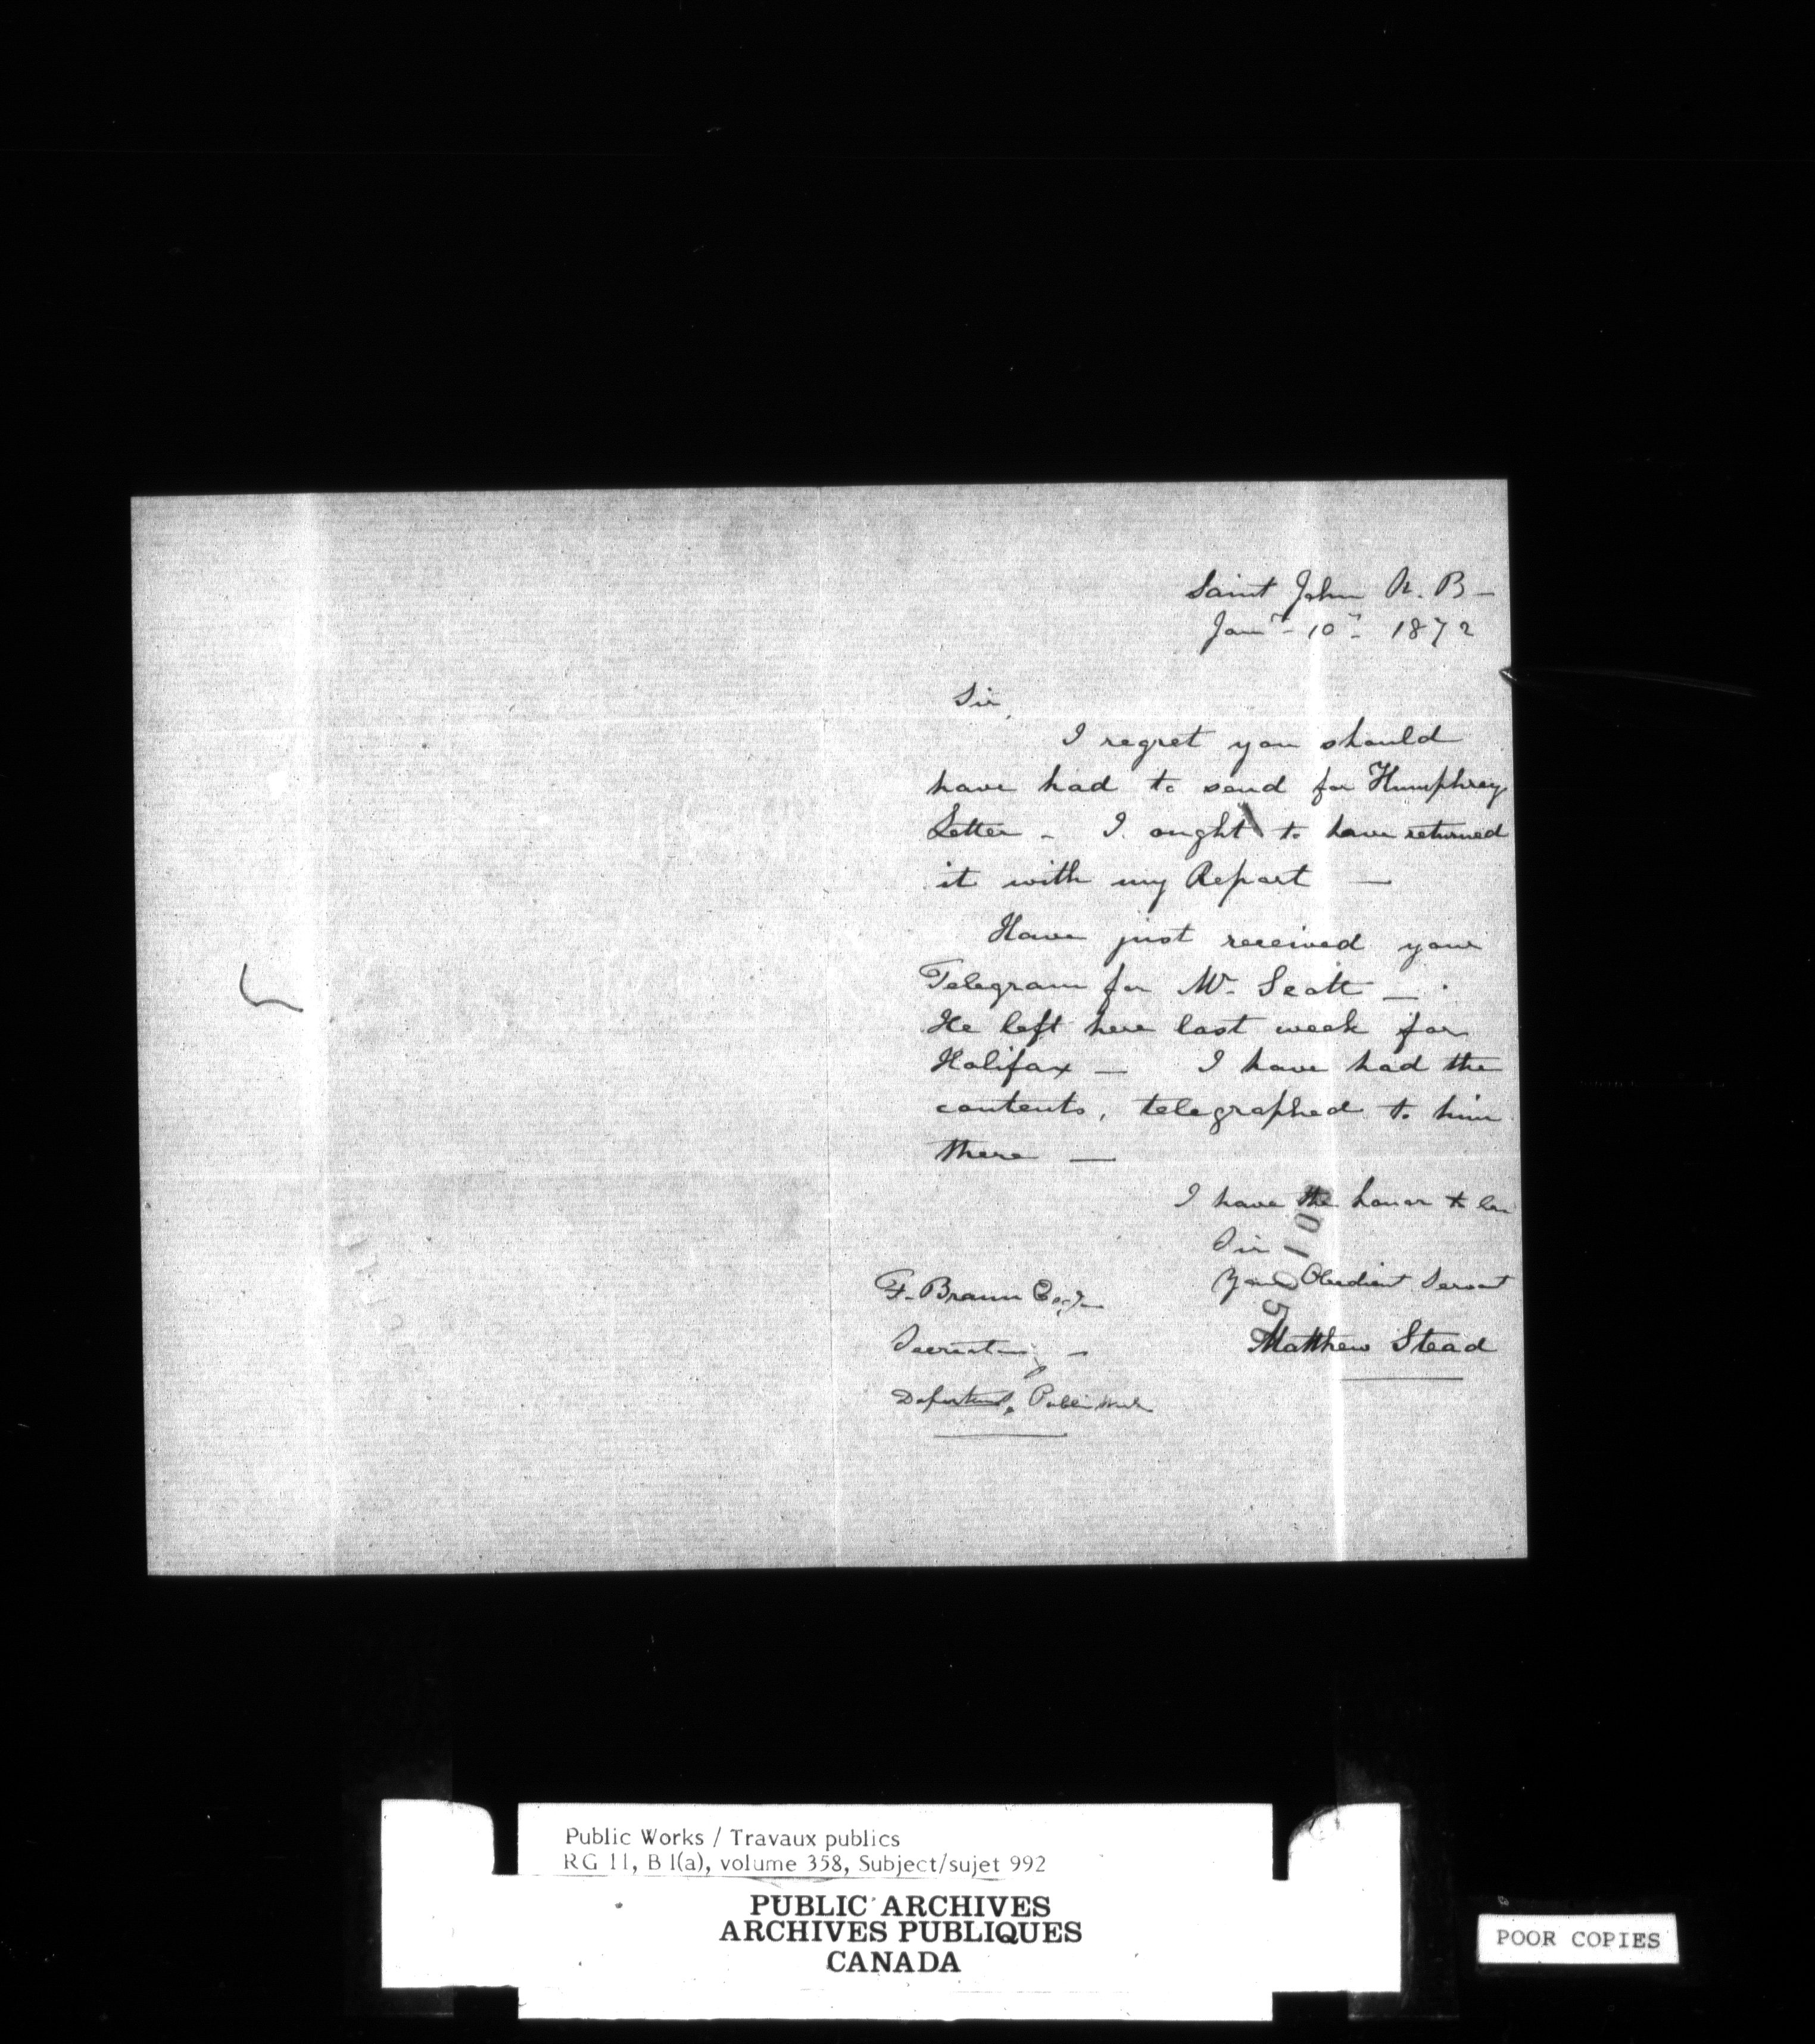 Saint John N. B —
Jany - 10th 1872
Sir,
I regret you should
have had to send for Humphrey
Letter - I ought to have returned
it with my Report —
Have just received your
Telegram for Mr. Scott —
He left here last week for
Halifax — I have had the
contents, telegraphed to him
there —
I have the honor to be
Sir
Your Obedient Servant
Matthew Stead
F. Braun Esqr
Secretary -
Department Public Works
Public Works / Travaux publics
RG 11, B 1(a), volume 358, Subject/sujet 992
PUBLIC ARCHIVES
ARCHIVES PUBLIQUES
CANADA
POOR COPIES